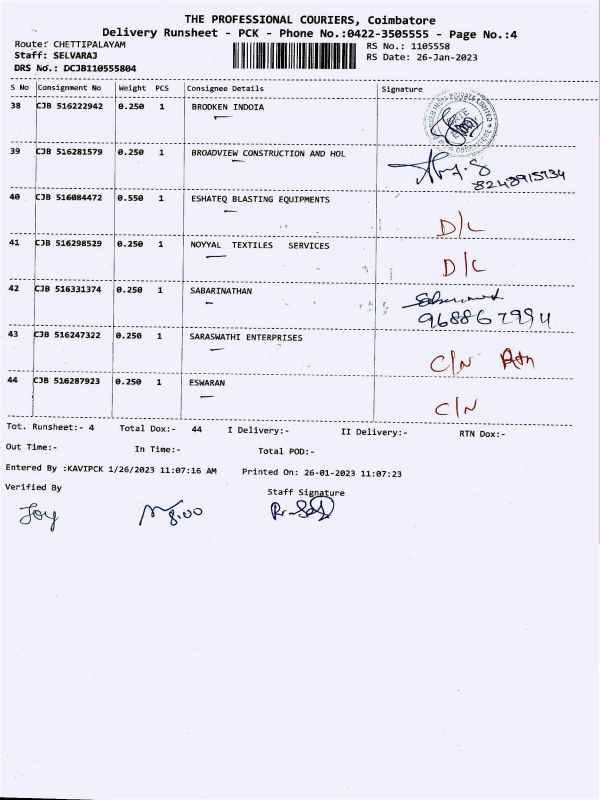 THE PROFESSIONAL COURIERS, Coimbatore
Delivery Runsheet - PCK - Phone No.:0422-3505555 - Page No.:4
Route: CHETTIPALAYAM RS No.: 1105558
Staff: SELVARAJ RS Date: 26-Jan-2023
DRS No.: DCJB110555804
S No Consignment No Weight PCS Consignee Details Signature
38 CJB 516222942 0.250 1 BRODKEN INDOIA
39 CJB 516281579 0.250 1 BROADVIEW CONSTRUCTION AND HOL
40 CJB 516084472 0.550 1 ESHATEQ BLASTING EQUIPMENTS
D/L
41 CJB 516298529 0.250 1 NOYYAL TEXTILES SERVICES
D/L
42 CJB 516331374 0.250 1 SABARINATHAN
43 CJB 516247322 0.250 1 SARASWATHI ENTERPRISES
C/N Rtn
44 CJB 516287923 0.250 1 ESWARAN
C/N
Tot. Runsheet:- 4 Total Dox:- 44 I Delivery:- II Delivery:- RTN Dox:-
Out Time:- In Time:- Total POD:-
Entered By :KAVIPCK 1/26/2023 11:07:16 AM Printed On: 26-01-2023 11:07:23
Verified By Staff Signature
Joy 8.00